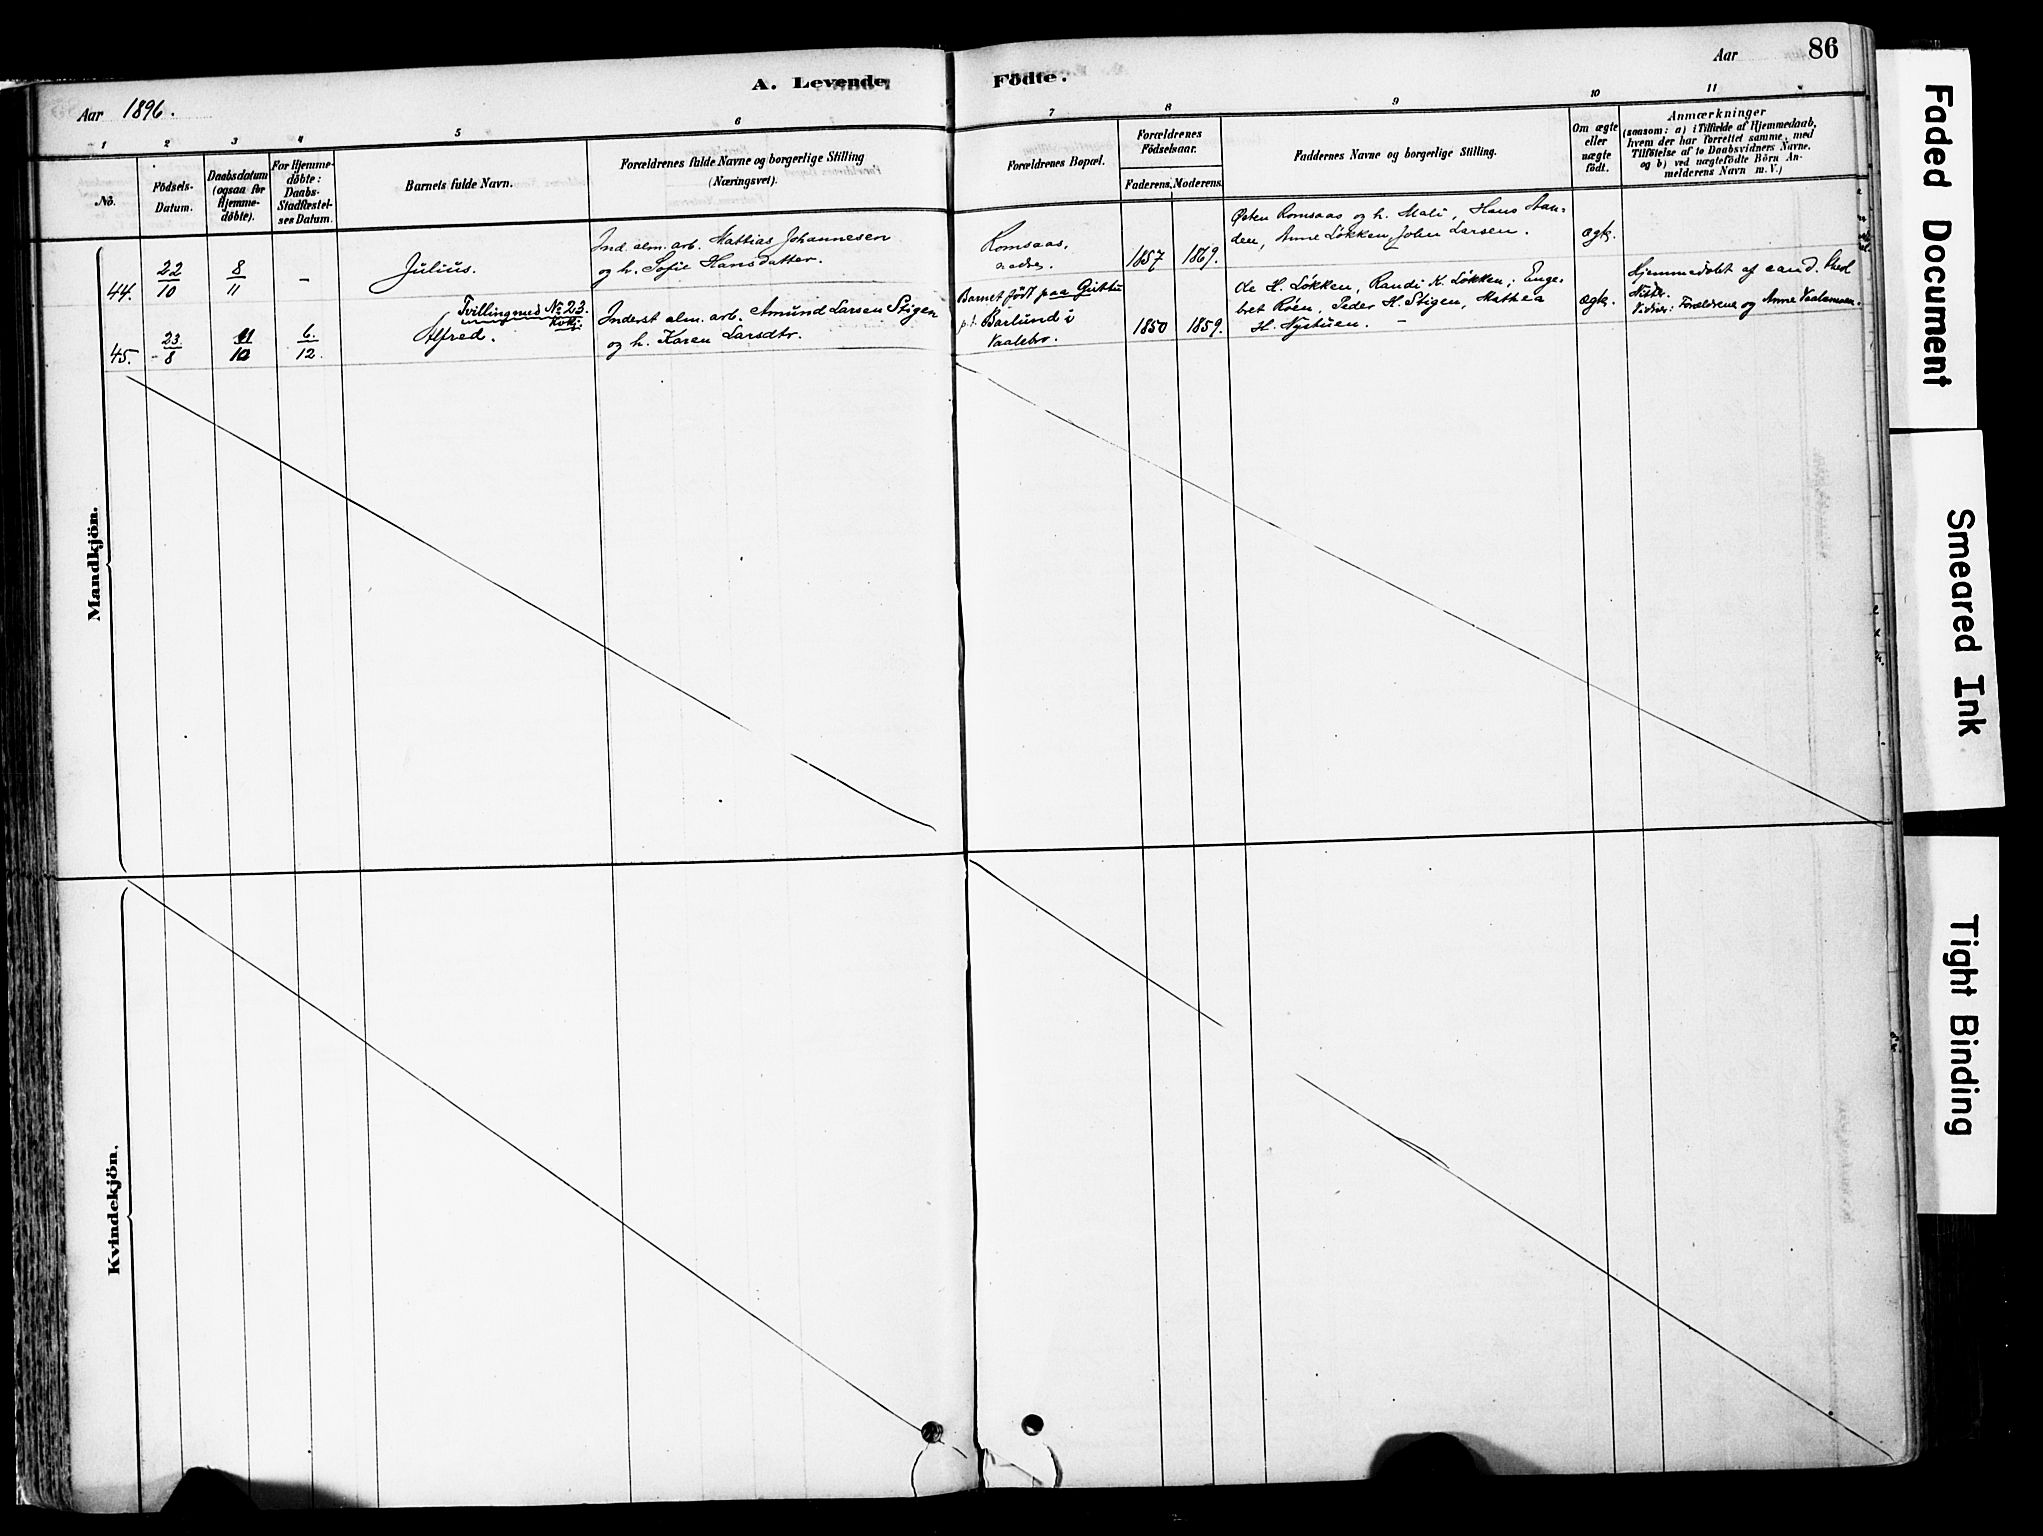 86
Aar
A. Levende
Födte.
Aar 1896.
1
2
3
4
5
6
7
8
9
10
11
No.
Födsels-
Datum.
Daabsdatum
(ogsaa for
Hjemme-
döbte).
For Hjemme-
döbte:
Daabs-
Stadfæstel-
ses Datum.
Barnets fulde Navn.
Forældrenes fulde Navne og borgerlige Stilling
(Næringsvei).
Forældrenes Bopæl.
Forældrenes
Födselsaar.
Faderens.
Moderens.
Faddernes Navne og borgerlige Stilling.
Om ægte
eller
uægte
födt.
Anmærkninger
(saasom: a) i Tilfælde af Hjemmedaab,
hvem der har forrettet samme, med
Tilföielse af to Daabsvidners Navne,
og b) ved uægtefödte Börn An-
melderens Navn m. V.)
Mandkjön.
44.
22/10
8/11
–
Julius.
Ind. alm. arb. Mattias Johannesen
og h. Sofie Hansdatter.
Romsaas,
1857
1869.
Østen Romsaas og h. Mali, Hans
den, Anne Løkken, John Larsen.
ægte.
45.
23/8
6./12.
Tvilling med No 23.
Kvkj.
Alfred.
Inderst alm. arb. Amund Larsen Stigen
og h. Karen Larsdtr.
Barnet født paa
p.t. Barlund i
Vaalebro.
1850
1859.
Ole H. Løkken, Randi K. Løkken, Enge-
bret Röen, Peder H. Stigen, Mathea
H. Nystuen. –
ægte.
Hjemmedøbt af cand.
Forældrene og Anne
Kvindekjön.
Faded Document
Smeared Ink
Tight Binding